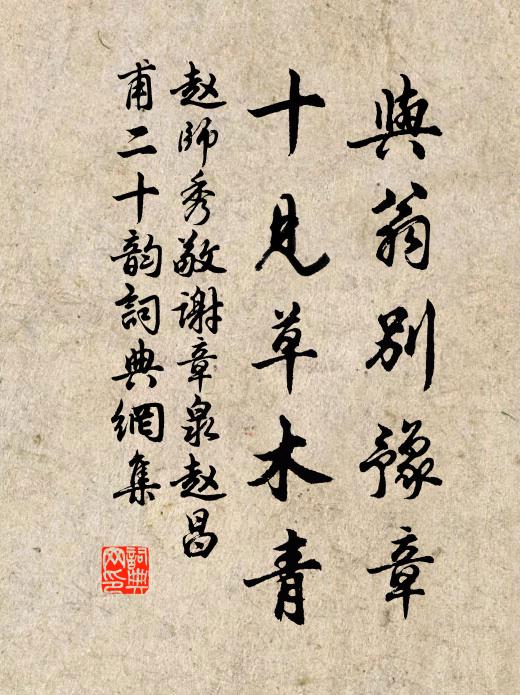 與翁別豫章
十見草木青
赵師秀敬謝章泉赵昌
甫二十韵詞典網集
詞典网印